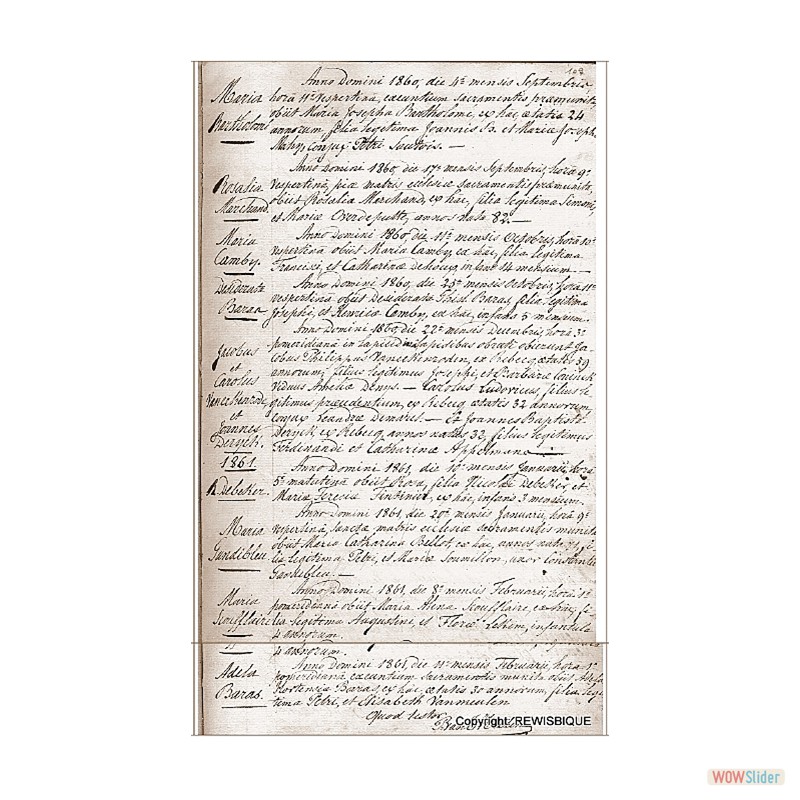 108
Anno Domini 1860, die 4ª mensis Septembris
Maria
Bartholomé
hora 11ª vespertina, exeuntium sacramentis præmunita
obiit Maria Josepha Bartholomé, ex hac, ætatis 24
annorum, filia legitima Joannis B. et Maria Joseph.
conjux Petri
Anno Domini 1860, die 17ª mensis Septembris, hora 9ª
Rosalia
Marchand.
vespertina, piæ matris ecclesiæ sacramentis præmunita,
obiit Rosalia Marchand, ex hac, filia legitima Simonis,
et Mariæ annos nata 82. —
Anno Domini 1860, die 11ª mensis Octobris, hora 10ª
Maria
Camby.
vespertina obiit Maria Camby, ex hac, filia legitima
Francisci, et Catharinæ infans 14 mensium. —
Anno Domini 1860, die 25ª mensis Octobris, hora 11ª
Desiderata
Baras
vespertina obiit Desiderata Baras, filia legitima
Josephi, et Camby, ex hac, infans 5 mensium.
Anno Domini 1860 die 22ª mensis Decembris, hora 3ª
Jacobus
et
Carolus
et
Joannes
Deryck.
pomeridiana in lapidibus obruti obierunt Ja-
cobus Philippus ex Rebecq ætatis 59
annorum, filius legitimus Josephi, et Barbaræ
viduus Ameliæ Denys. — Carolus Ludovicus, filius le-
gitimus præcedentium, ex Rebecq ætatis 32 annorum,
conjux Leandræ Demaret. — Et Joannes Baptista
Deryck, ex Rebecq, annos natus 32, filius legitimus
Ferdinandi et Catharinæ Appelmans —
1861.
Anno Domini 1861, die 10ª mensis Januarii, hora
R. Debeker.
5ª matutina obiit Rosa, filia Nicolai Debeker, et
Maria Teresia ex hac, infans 3 mensium.
Anno Domini 1861, die 20ª mensis Januarii, hora 9ª
Maria
Gandibleu
vespertina, sanctæ matris ecclesiæ sacramentis munita
obiit Maria Catharina Bellot, ex hac, annos nata 71, fi-
lia legitima Petri, et Mariæ uxor Constantini
Gandibleu. —
Anno Domini 1861, die 8ª mensis Februarii, hora 1ª
Maria
Scoufflaire
pomeridiana obiit Maria Scoufflaire, ex hac, fi-
lia legitima Augustini, et Floræ infantula
4 annorum.
4 annorum.
Anno Domini 1861, die 11ª mensis Februarii, hora 1ª
Adela
Baras.
pomeridiana exeuntium sacramentis munita obiit Adela
Hortensia Baras, ex hac, ætatis 30 annorum, filia legi-
tima Petri, et Elisabeth Vanmeulen
Quod testor
Copyright REWISBIQUE
WOWSlider